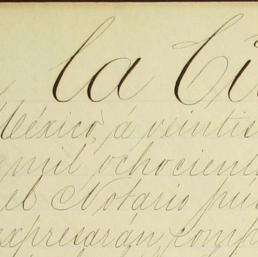 la Ci
México, á veintis
mil ochocient
el Notario pú
expresarán, comp